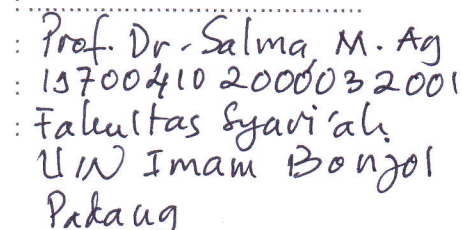 : Prof. Dr. Salma, M. Ag
: 19700410 200003 2001
: Fakultas Syari'ah
UIN Imam Bonjol
Padang